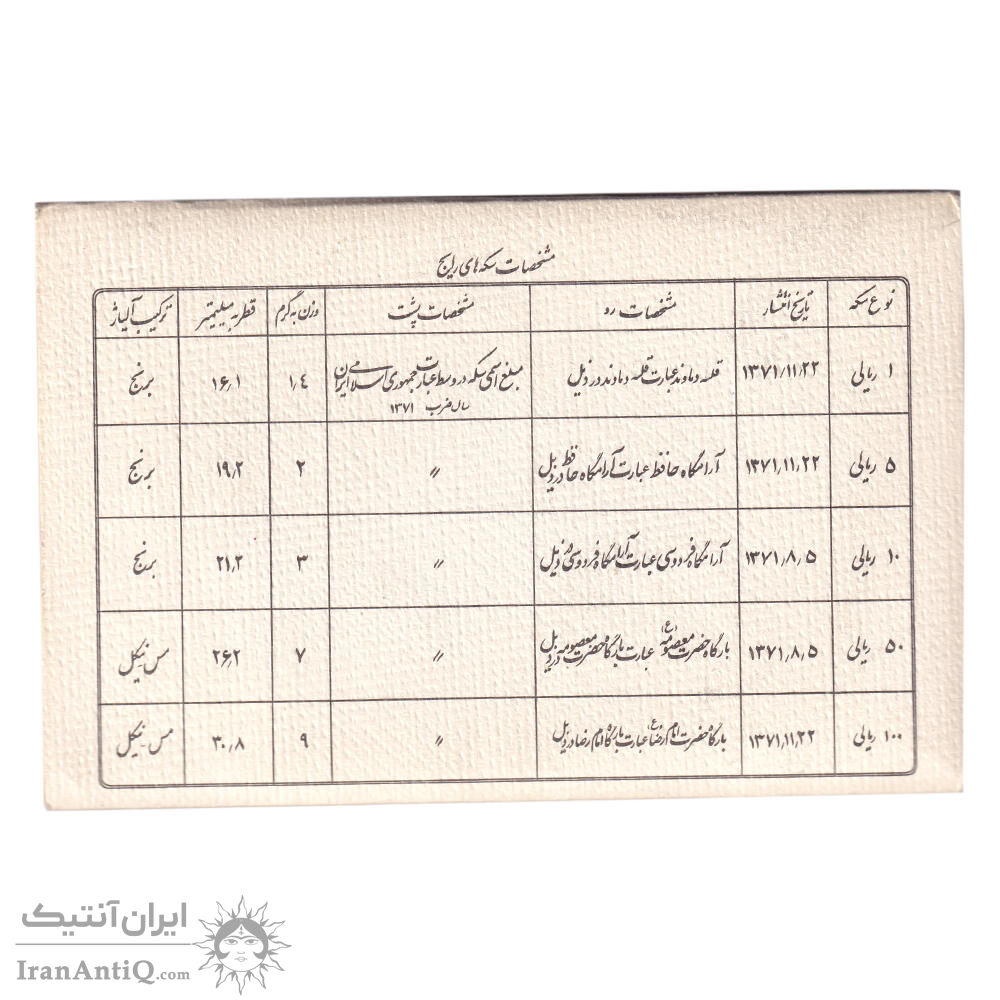 مشخصات سکه های رایج
نوع سکه	تاریخ انتشار	مشخصات رو	مشخصات پشت	وزن به گرم	قطر به میلیمتر	ترکیب آلیاژ
۱ ریالی	۱۳۷۱٫۱۱٫۲۲	قله دماوند عبارت قله دماوند در ذیل	مبلغ اسمی سکه در وسط عبارت جمهوری اسلامی ایران	۱٫۴	۱۶٫۱	برنج
سال ضرب ۱۳۷۱
۵ ریالی	۱۳۷۱٫۱۱٫۲۲	آرامگاه حافظ عبارت آرامگاه حافظ در ذیل	〃	۲	۱۹٫۲	برنج
۱۰ ریالی	۱۳۷۱٫۸٫۵	آرامگاه فردوسی عبارت آرامگاه فردوسی در ذیل	〃	۳	۲۱٫۲	برنج
۵۰ ریالی	۱۳۷۱٫۸٫۵	بارگاه حضرت معصومه (ع) عبارت بارگاه حضرت معصومه در ذیل	〃	۷	۲۶٫۲	مس-نیکل
۱۰۰ ریالی	۱۳۷۱٫۱۱٫۲۲	بارگاه حضرت امام رضا (ع) عبارت بارگاه امام رضا در ذیل	〃	۹	۳۰٫۸	مس-نیکل
ایران آنتیک
IranAntiQ.com